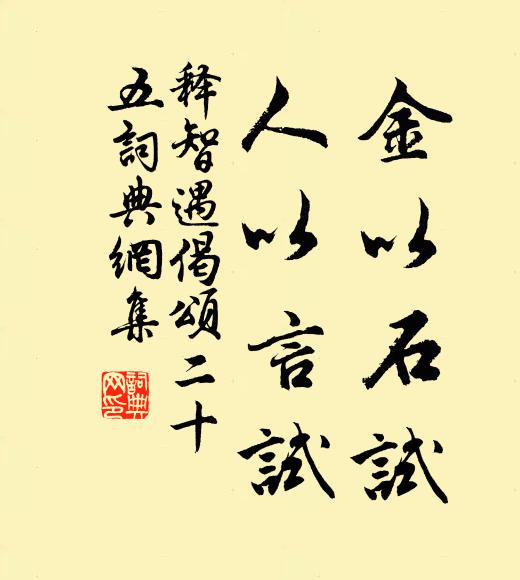 金以石試
人以言試
释智遇偈頌二十
五詞典網集
詞典
网印